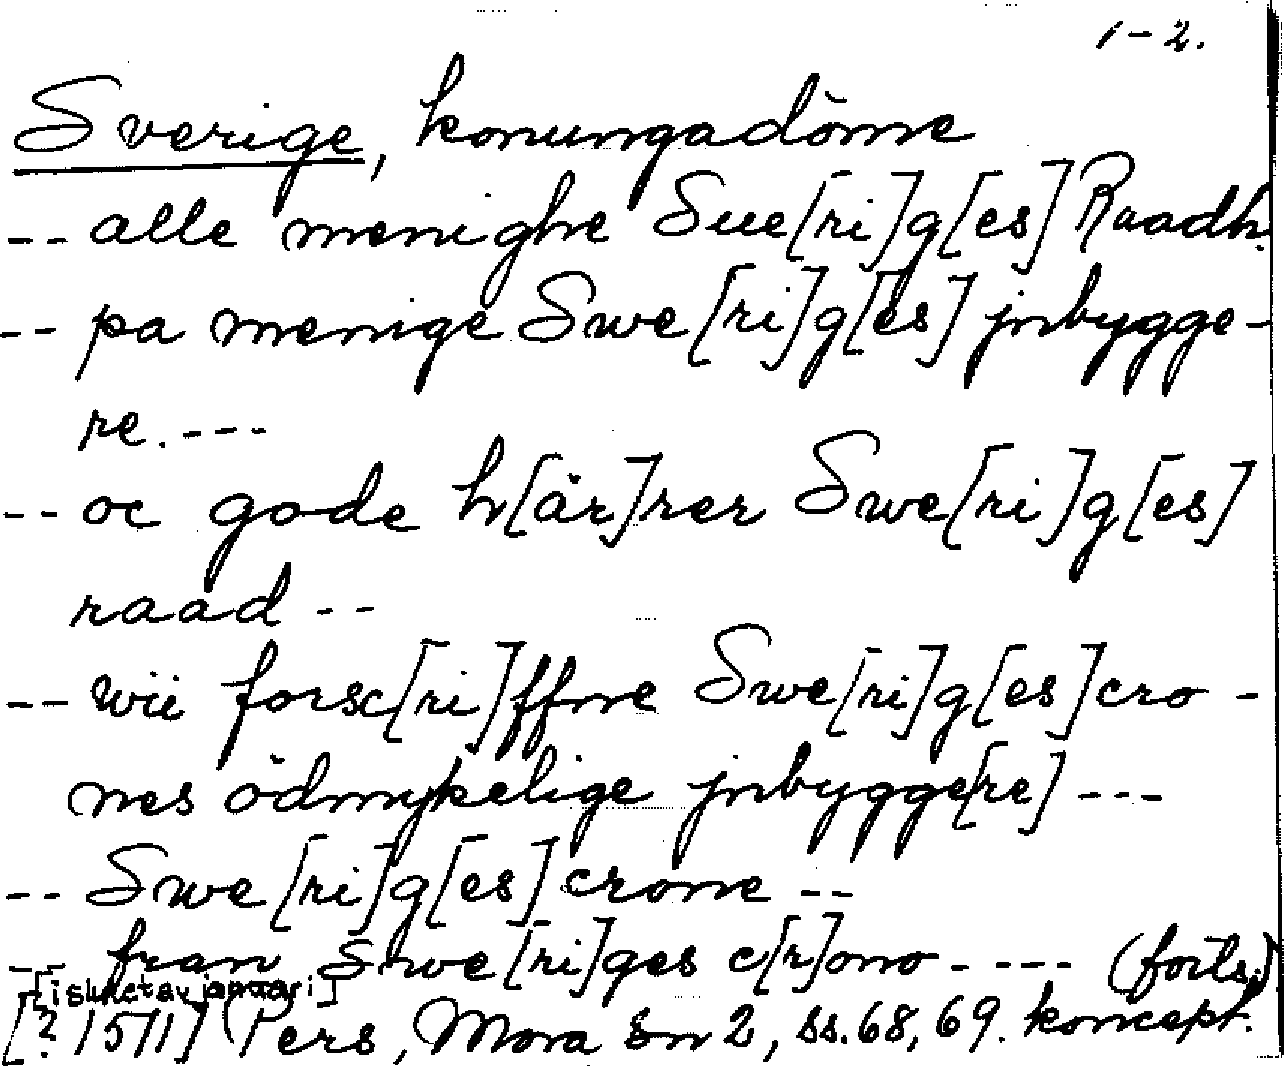 1-2.
Sverige, konungadöme
-- alle menighe Sue[ri]g[es] Raadh.
-- pa menige Swe[ri]g[es] jnbygge-
re. ---
-- oc gode h[är]rer Swe[ri]g[es]
raad --
-- wii forsc[ri]ffne Swe[ri]g[es] cro-
nes ödmykelige jnbygge[re] ---
-- Swe[ri]g[es] crone --
-- fran Swe[ri]ges c[r]ono ---- (forts.)
[i slutet av januari]
[? 1511] (Pers, Mora sn 2, ss. 68, 69. koncept.